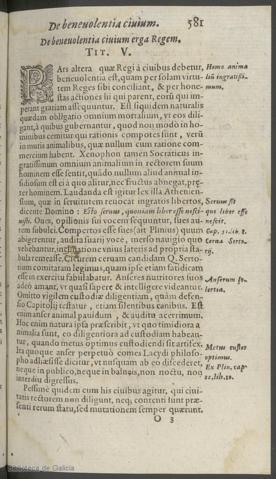 De beneuolentia ciuium. 581
De beneuolentia ciuium erga Regem.
TIT. V.
PArs altera quæ Regi à ciuibus debetur,
beneuolentia est, quam per solam virtu-
tem Reges sibi conciliant, & per hone-
stas actiones ij qui parent, eorũ qui im-
perant gratiam assequuntur. Est siquidem naturalis
quædam obligatio omnium mortalium, vt eos dili-
gant, à quibus gubernantur, quod non modò in ho-
minibus cernitur qui rationis compotes sunt, verũ
in mutis animalibus, quæ nullum cum ratione com-
mercium habent. Xenophon tamen Socraticus in-
gratissimum omnium animalium in rectorem suum
hominem esse sentit, quãdo nullum aliud animal in-
sidiosum est ei à quo alitur, nec fructus abnegat, præ-
ter hominem. Laudanda est igitur lex illa Athenien-
sium, quæ in seruitutem reuocat ingratos libertos,
dicente Domino: Esto seruus, quoniam liber esse nesci-
uisti. Oues, opilioni sui vocem sequuntur, sues au-
tem subulci. Compertos esse sues (ait Plinius) quum
abigerentur, audita suarij voce, merso nauigio quo
vehebantur, inclinatione vnius lateris ad propria sta-
bula remeasse. Ceruam candidam Q. Serto-
rium comitatam legimus, quam ipse etiam fatidicam
esse in exercitu fabulabatur. Anseres nutritores suos
adeò amant, vt quasi sapere & intelligere videantur.
Omitto vigilem custodiæ diligentiam, quàm defen-
so Capitolij testatur, etiam silentibus canibus. Est
enim anser animal pauidum, & auditu acerrimum.
Hoc enim natura ipsa præscribit, vt quo timidiora a-
nimalia sunt, eo diligentiora ad custodiam habean-
tur, quando metus optimus custodiendi sit artifex.
Ita quoque anser perpetuò comes Lacydi philoso-
pho adhæsisse dicitur, vt nusquam ab eo discederet,
neque in publico, neque in balneis, non noctu, non
interdiu digressus.
Pessime quidem cum his ciuibus agitur, qui ciui-
tatis rectorem non diligunt, neq; contenti sunt præ-
senti rerum statu, sed mutationem semper quærunt.
O 3
Homo anima
liũ ingratissi-
mum.
Seruus sit
qui liber esse
nescit.
Cerua Serto-
rij.
Anserum so-
lertia.
Metus custos
optimus.
Ex Plin. cap.
22. lib. 10.
Biblioteca de Galicia